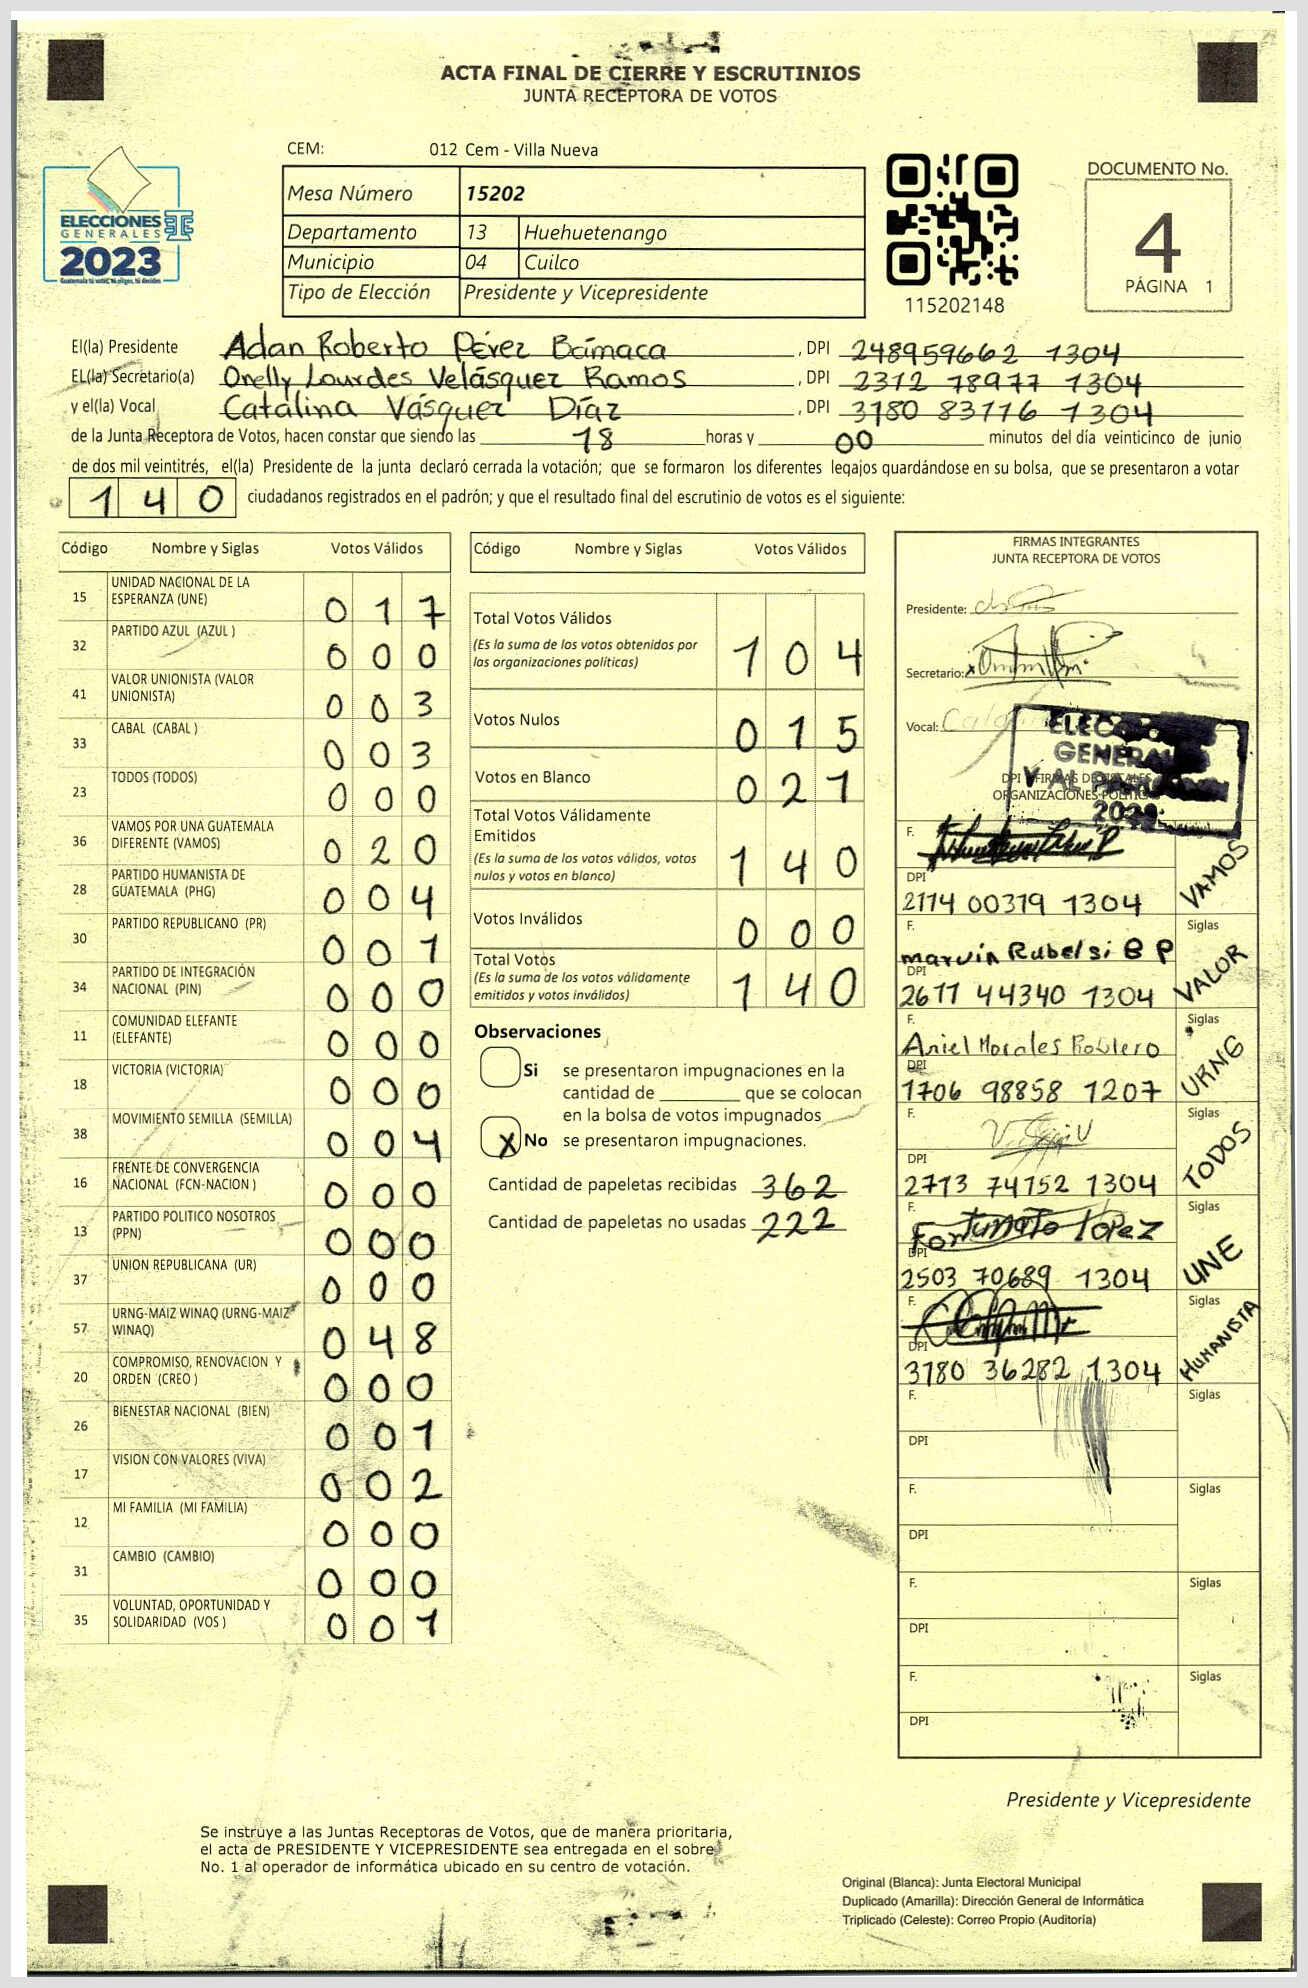 ACTA FINAL DE CIERRE Y ESCRUTINIOS
JUNTA RECEPTORA DE VOTOS
CEM: 012 Cem - Villa Nueva
Mesa Número 15202
Departamento 13 Huehuetenango
Municipio 04 Cuilco
Tipo de Elección Presidente y Vicepresidente
ELECCIONES
GENERALES
2023
115202148
DOCUMENTO No.
4
PÁGINA 1
El(la) Presidente Adan Roberto Pérez Bámaca, DPI 248959662 1304
EL(la) Secretario(a) Orelly Lourdes Velásquez Ramos, DPI 2312 78977 1304
y el(la) Vocal Catalina Vásquez Díaz, DPI 3180 83776 1304
de la Junta Receptora de Votos, hacen constar que siendo las 18 horas y 00 minutos del día veinticinco de junio
de dos mil veintitrés, el(la) Presidente de la junta declaró cerrada la votación; que se formaron los diferentes legajos guardándose en su bolsa, que se presentaron a votar
140 ciudadanos registrados en el padrón; y que el resultado final del escrutinio de votos es el siguiente:
Código Nombre y Siglas Votos Válidos
15 UNIDAD NACIONAL DE LA ESPERANZA (UNE) 017
32 PARTIDO AZUL (AZUL ) 000
41 VALOR UNIONISTA (VALOR UNIONISTA) 003
33 CABAL (CABAL ) 003
23 TODOS (TODOS) 000
36 VAMOS POR UNA GUATEMALA DIFERENTE (VAMOS) 020
28 PARTIDO HUMANISTA DE GUATEMALA (PHG) 004
30 PARTIDO REPUBLICANO (PR) 001
34 PARTIDO DE INTEGRACIÓN NACIONAL (PIN) 000
11 COMUNIDAD ELEFANTE (ELEFANTE) 000
18 VICTORIA (VICTORIA) 000
38 MOVIMIENTO SEMILLA (SEMILLA) 004
16 FRENTE DE CONVERGENCIA NACIONAL (FCN-NACION ) 000
13 PARTIDO POLITICO NOSOTROS (PPN) 000
37 UNION REPUBLICANA (UR) 000
57 URNG-MAIZ WINAQ (URNG-MAIZ WINAQ) 048
20 COMPROMISO, RENOVACION Y ORDEN (CREO ) 000
26 BIENESTAR NACIONAL (BIEN) 001
17 VISION CON VALORES (VIVA) 002
12 MI FAMILIA (MI FAMILIA) 000
31 CAMBIO (CAMBIO) 000
35 VOLUNTAD, OPORTUNIDAD Y SOLIDARIDAD (VOS ) 001
Código Nombre y Siglas Votos Válidos
Total Votos Válidos 104
(Es la suma de los votos obtenidos por
las organizaciones políticas)
Votos Nulos 015
Votos en Blanco 021
Total Votos Válidamente
Emitidos 140
(Es la suma de los votos válidos, votos
nulos y votos en blanco)
Votos Inválidos 000
Total Votos 140
(Es la suma de los votos válidamente
emitidos y votos inválidos)
Observaciones
Si se presentaron impugnaciones en la
cantidad de ________ que se colocan
en la bolsa de votos impugnados
X No se presentaron impugnaciones.
Cantidad de papeletas recibidas 362
Cantidad de papeletas no usadas 222
FIRMAS INTEGRANTES
JUNTA RECEPTORA DE VOTOS
Presidente:
Secretario:
Vocal:
ELECC
GENERA
Y AL PA
F.
DPI
2114 00319 1304
VAMOS
F. Siglas
Marvin Rubelsi B P
DPI
2611 44340 1304
VALOR
F. Siglas
Ariel Morales Roblero
DPI
1706 98858 1207
URNG
F. Siglas
DPI
2713 74152 1304
TODOS
F. Siglas
Fortunato López
DPI
2503 70689 1304
UNE
F. Siglas
DPI
3180 36282 1304
HUMANISTA
F. Siglas
DPI
F. Siglas
DPI
F. Siglas
DPI
F. Siglas
DPI
Presidente y Vicepresidente
Se instruye a las Juntas Receptoras de Votos, que de manera prioritaria,
el acta de PRESIDENTE Y VICEPRESIDENTE sea entregada en el sobre
No. 1 al operador de informática ubicado en su centro de votación.
Original (Blanca): Junta Electoral Municipal
Duplicado (Amarilla): Dirección General de Informática
Triplicado (Celeste): Correo Propio (Auditoría)